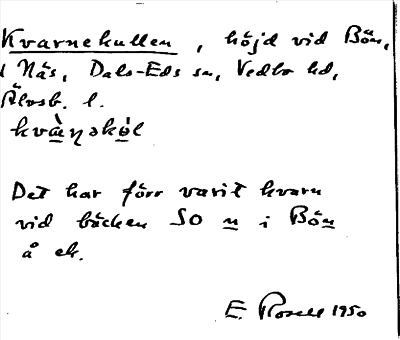 Kvarnekullen, höjd vid Bön,
i Näs, Dals-Eds sn, Vedbo hd,
Älvsb. l.
kvàηəköl
Det har förr varit kvarn
vid bäcken SO n i Bön
å ek.
E. Rosell 1950